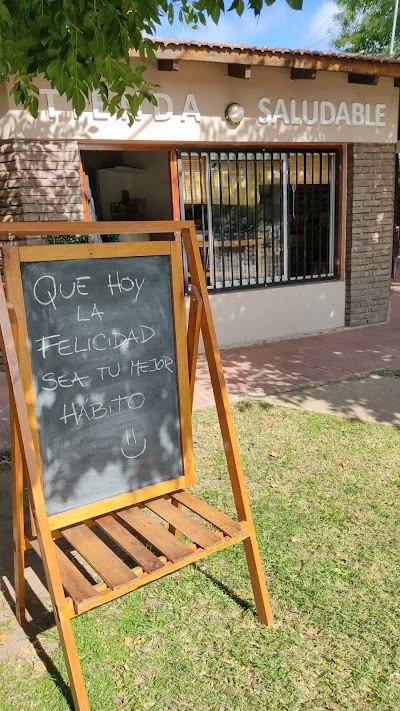 TIENDA SALUDABLE
QUE HOY
LA
FELICIDAD
SEA TU MEJOR
HÁBITO